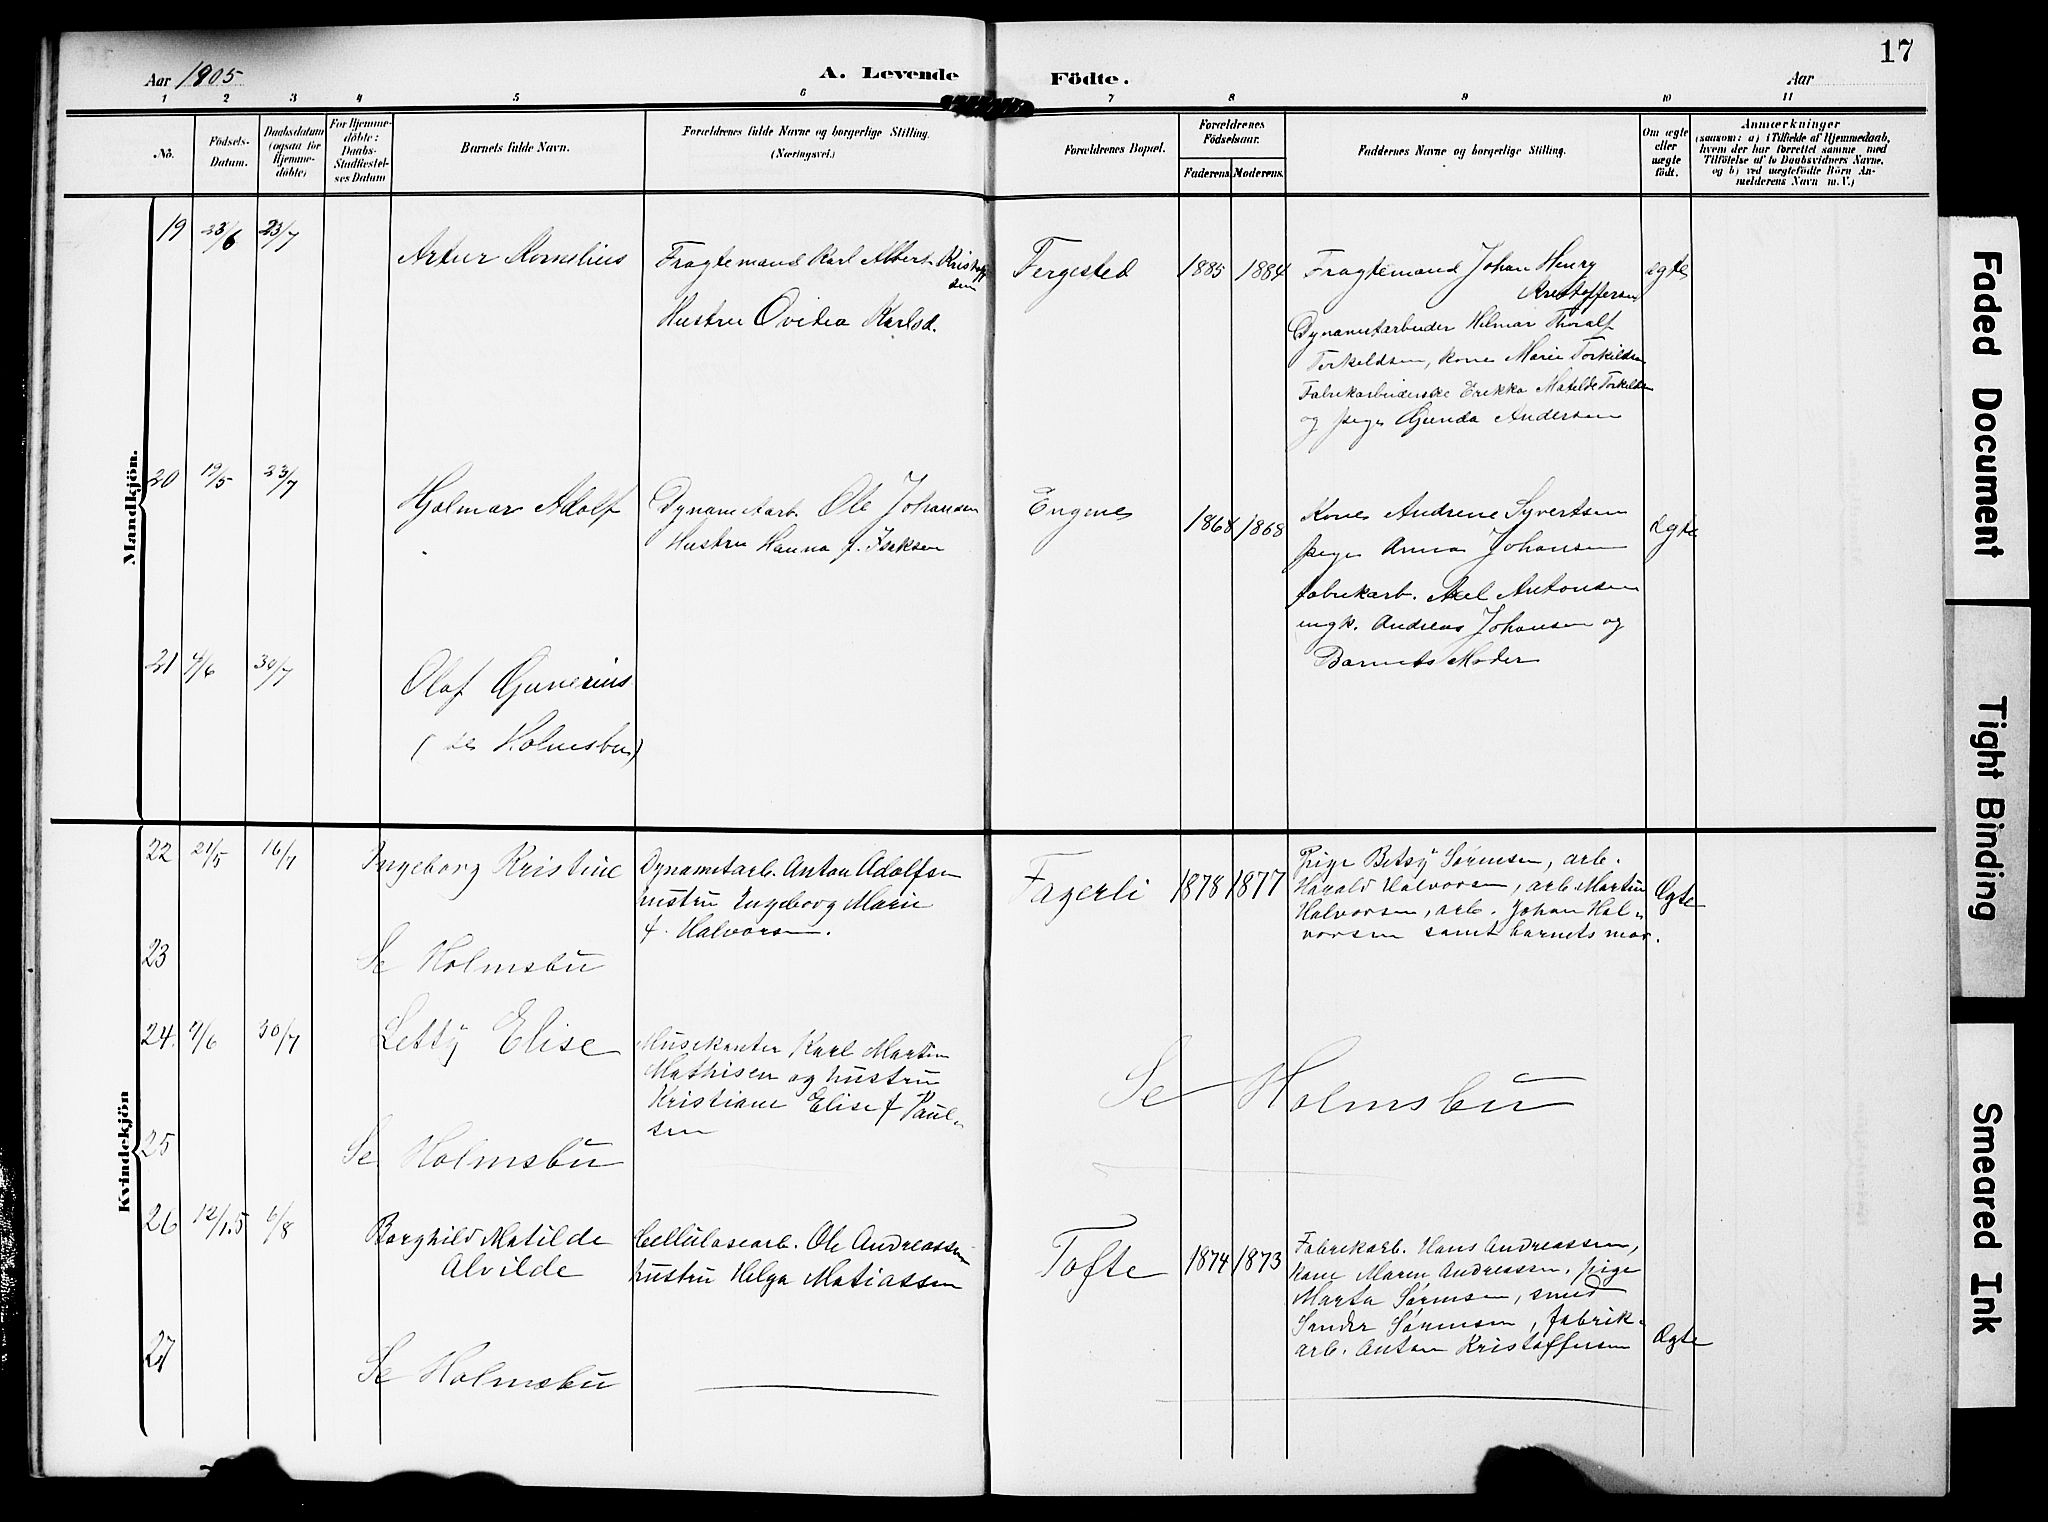 Aar 1905
A. Levende
Födte.
Aar
17
1 2 3 4 5 6 7 8 9 10 11
No.
Födsels-
Datum.
Daabsdatum
(ogsaa for
Hjemme-
döbte)
For Hjemme-
döbte:
Daabs-
Stadfæstel-
ses Datum
Barnets fulde Navn.
Forældrenes fulde Navne og borgerlige Stilling.
(Næringsvei.)
Forældrenes Bopæl.
Forældrenes
Födselsaar.
Faderens.
Moderens.
Faddernes Navne og borgerlige Stilling.
Om ægte
eller
uægte
födt.
Anmærkninger
(saasom: a) i Tilfælde af Hjemmedaab,
hvem der har forrettet samme med
Tilföielse af to Daabsvidners Navne,
og b) ved uægtefödte Börn An-
melderens Navn m. V.)
Mandkjön.
19 23/6 23/7
Artur Kornelius
Fragtemand Karl Albert Kristoff
sen
Hustru Ovidia Karlsd.
Fergested
1885 1884
Fragtemand Johan Henry
Kristoffersen
Dynamitarbeider Hilmar Thoralf
Torkeldsen, kone Marie Torkildsen
Fabrikarbeiderske Erikka Matilde Torkildsen
og pige Gunda Andersen
ægte
20 19/5 23/7
Hjalmar Adolf
Dynamitarb. Ole Johansen
Hustru Hanna f. Isaksen
Engenes
1868 1868
Kone Andrene Syvertsen
pige Anna Johansen
fabrikarb. Axel Antonsen
ungk. Andreas Johansen og
Barnets Moder
ægte
21 4/6 30/7
Olaf Gunerius
(se Holmsbu)
Kvindekjön
22 21/5 16/7
Ingeborg Kristine
Dynamitarb. Anton Adolfsen
hustru Ingeborg Marie
f. Halvorsen.
Fagerli
1878 1877
Pige Betsy Sørensen, arb.
Harald Halvorsen, arb Martin
Halvorsen, arb. Johan Hal-
vorsen samt barnets mor.
Ægte
23
Se Holmsbu
24. 4/6 30/7
Letty Elise
Musikanter Karl Martin
Mathisen og hustru
Kristiane Elise f Paul-
sen
Se Holmsbu
25
Se Holmsbu
26 12/1.5 6/8
Borghild Matilde
Alvilde
Cellulosearb. Ole Andreassen
hustru Helga Matiassen
Tofte
1874 1873
Fabrikarb. Hans Andreassen,
kone Maren Andreassen, pige
Marta Sørensen, smed
Sander Sørensen, fabrik-
arb. Anton Kristoffersen
Ægte
27
Se Holmsbu
Faded Document
Tight Binding
Smeared Ink